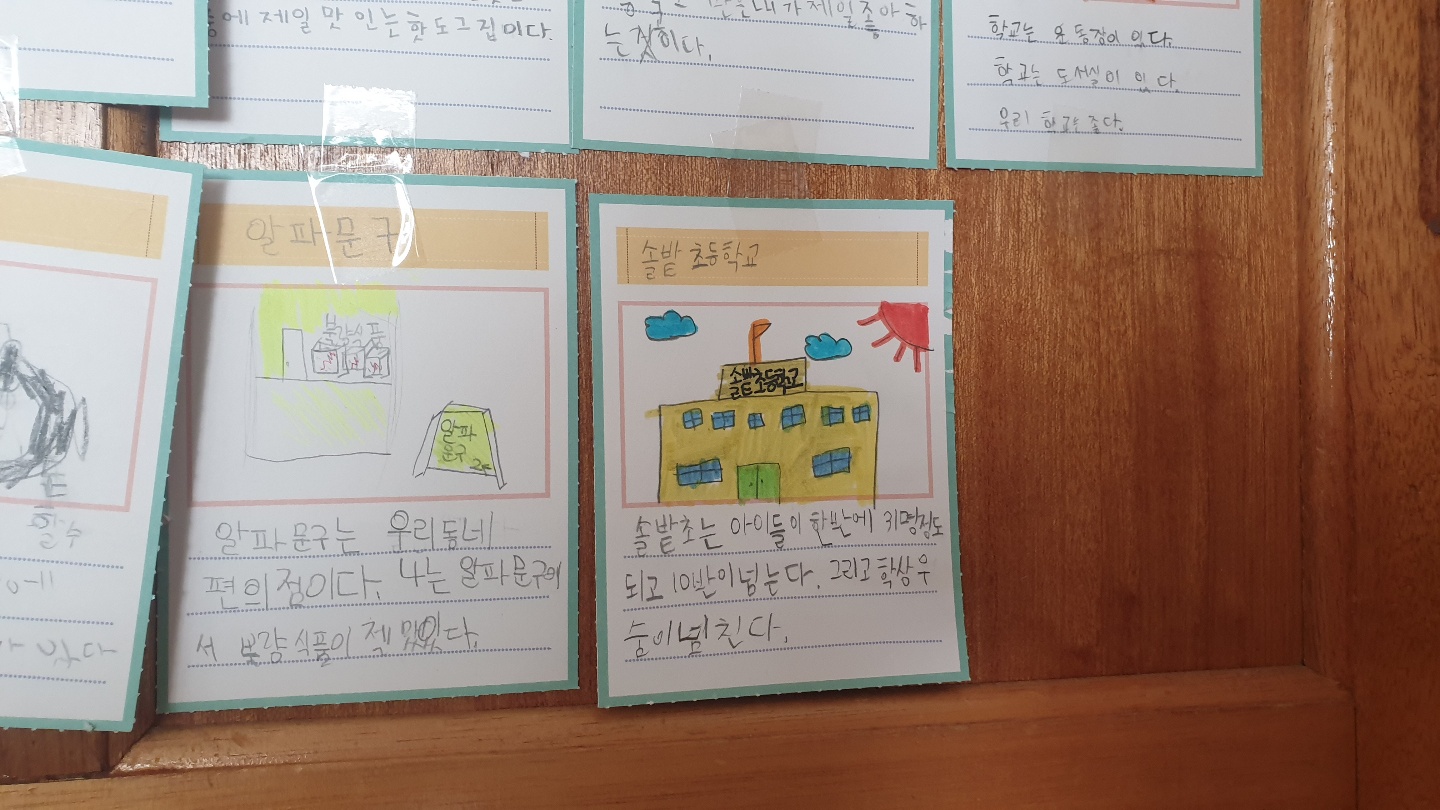 에 제일 맛 인는 핫도그집이다.
제일 좋아하
는 것이다.
학교는 운동장이 있다.
학교는 도서실이 있다.
우리 학교는 좋다.
알파문구
불량식품
알파
문구
알파문구는 우리동네
편의점이다. 나는 알파문구에
서 불량식품이 젤 맜있다.
솔밭초등학교
솔밭초등학교
솔밭초는 아이들이 한반에 31명정도
되고 10반이넘는다. 그리고 학상우
숨이넘친다.
할수